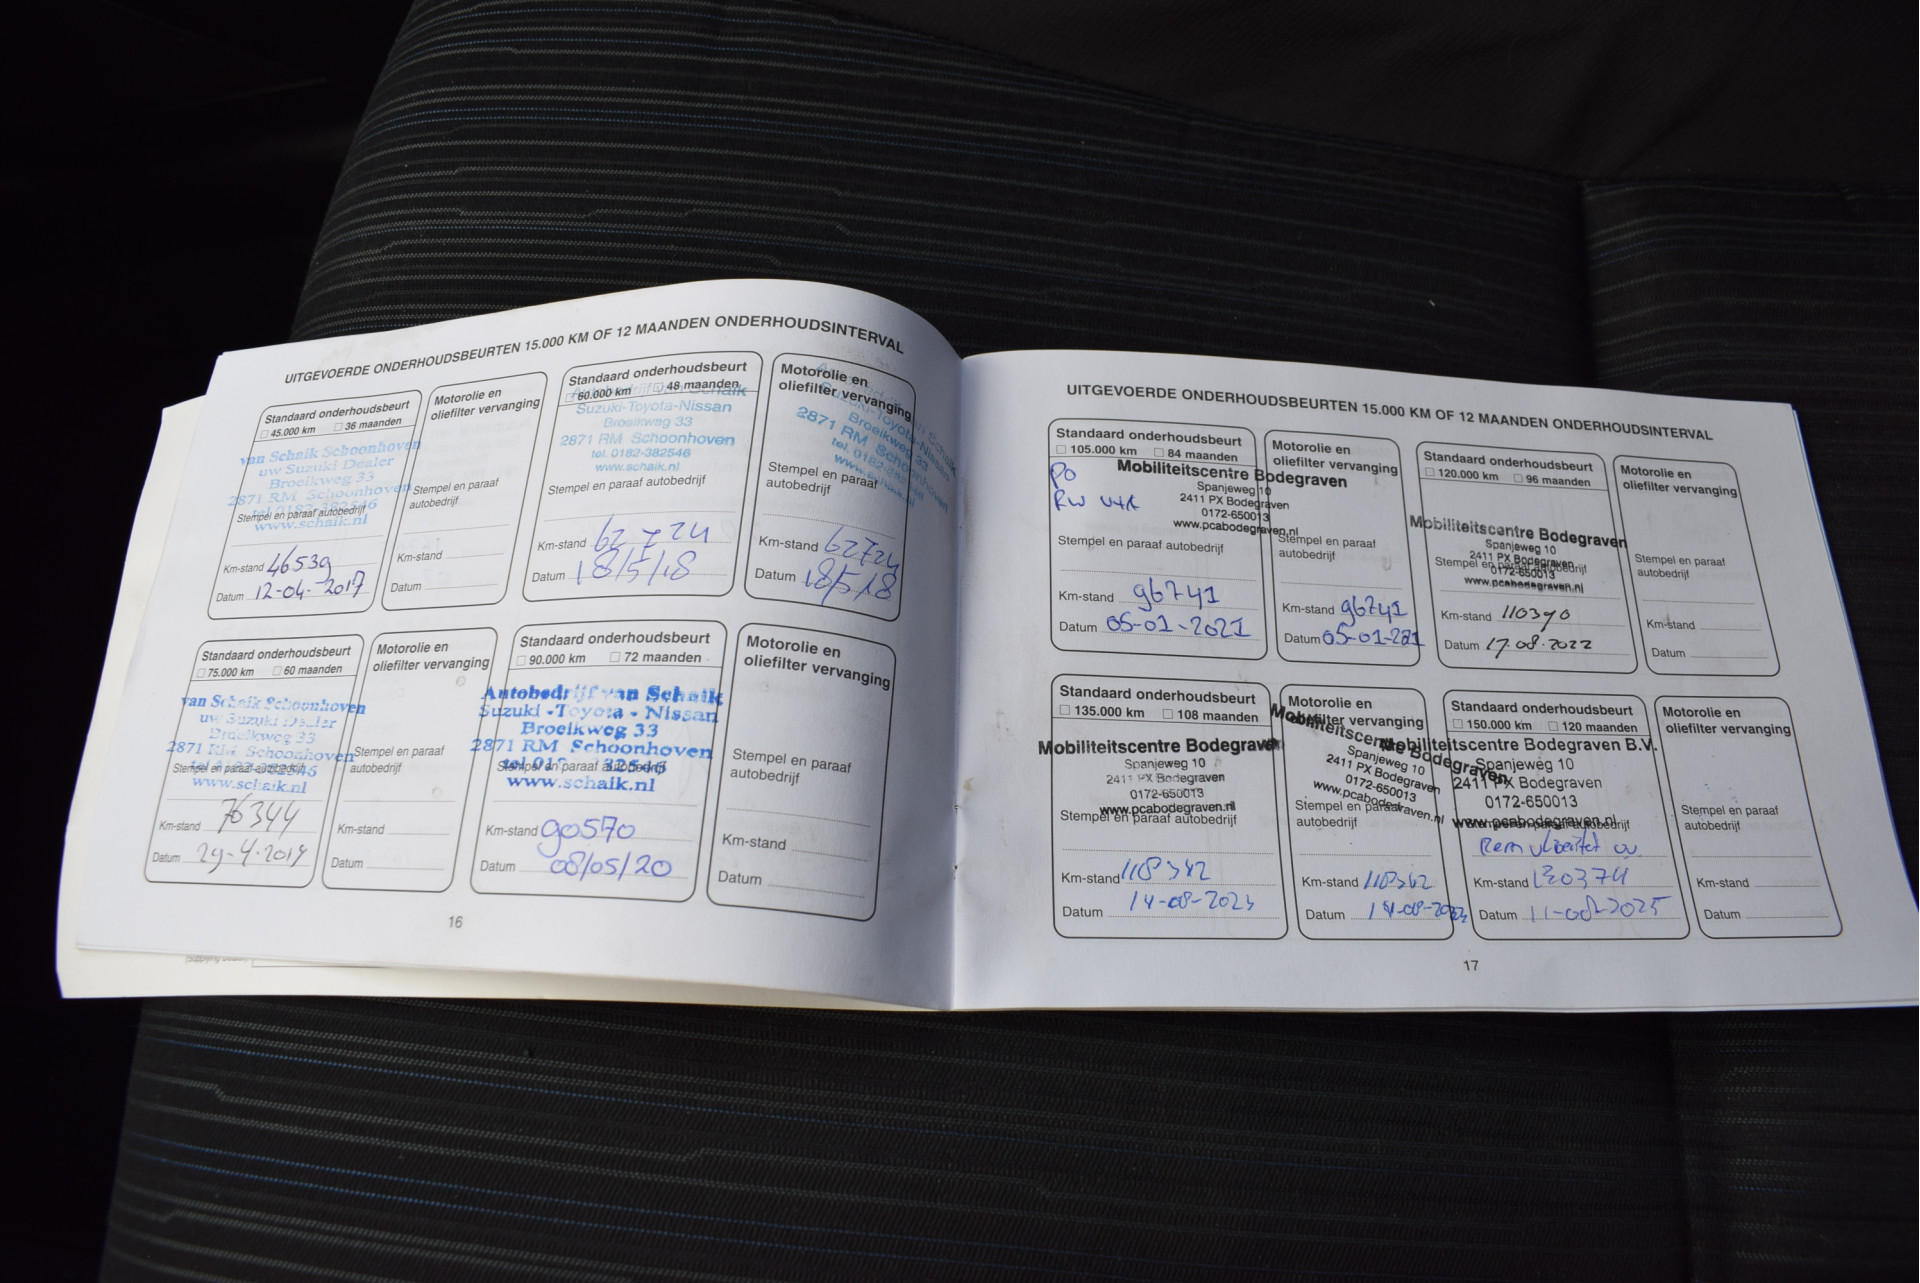 UITGEVOERDE ONDERHOUDSBEURTEN 15.000 KM OF 12 MAANDEN ONDERHOUDSINTERVAL
Standaard onderhoudsbeurt
45.000 km 36 maanden
van Schaik Schoonhoven
uw Suzuki Dealer
Broeikweg 33
2871 RM Schoonhoven
tel 0182-382546
Stempel en paraaf autobedrijf
www.schaik.nl
Km-stand 46539
Datum 12-04-2017
Motorolie en
oliefilter vervanging
Stempel en paraaf
autobedrijf
Km-stand
Datum
Standaard onderhoudsbeurt
60.000 km 48 maanden
Autobedrijf van Schaik
Suzuki-Toyota-Nissan
Broeikweg 33
2871 RM Schoonhoven
tel. 0182-382546
www.schaik.nl
Stempel en paraaf autobedrijf
Km-stand 62724
Datum 18/5/18
Motorolie en
oliefilter vervanging
Suzuki-Toyota-Nissan
Broeikweg 33
2871 RM Schoonhoven
tel. 0182-382546
www.schaik.nl
Stempel en paraaf
autobedrijf
Km-stand 62724
Datum 18/5/18
Standaard onderhoudsbeurt
75.000 km 60 maanden
van Schaik Schoonhoven
uw Suzuki Dealer
Broeikweg 33
2871 RM Schoonhoven
tel 0182-382546
Stempel en paraaf autobedrijf
www.schaik.nl
Km-stand 76344
Datum 29-4-2019
Motorolie en
oliefilter vervanging
Stempel en paraaf
autobedrijf
Km-stand
Datum
Standaard onderhoudsbeurt
90.000 km 72 maanden
Autobedrijf van Schaik
Suzuki - Toyota - Nissan
Broeikweg 33
2871 RM Schoonhoven
Stempel en paraaf autobedrijf
www.schaik.nl
Km-stand 90570
Datum 08/05/20
Motorolie en
oliefilter vervanging
Stempel en paraaf
autobedrijf
Km-stand
Datum
16
UITGEVOERDE ONDERHOUDSBEURTEN 15.000 KM OF 12 MAANDEN ONDERHOUDSINTERVAL
Standaard onderhoudsbeurt
105.000 km 84 maanden
PO
Mobiliteitscentre Bodegraven
Spanjeweg 10
2411 PX Bodegraven
0172-650013
www.pcabodegraven.nl
Stempel en paraaf autobedrijf
Km-stand 96741
Datum 05-01-2021
Motorolie en
oliefilter vervanging
Stempel en paraaf
autobedrijf
Km-stand 96741
Datum 05-01-221
Standaard onderhoudsbeurt
120.000 km 96 maanden
Mobiliteitscentre Bodegraven
Spanjeweg 10
2411 PX Bodegraven
Stempel en paraaf autobedrijf
0172-650013
www.pcabodegraven.nl
Km-stand 110390
Datum 17-08-2022
Motorolie en
oliefilter vervanging
Stempel en paraaf
autobedrijf
Km-stand
Datum
Standaard onderhoudsbeurt
135.000 km 108 maanden
Mobiliteitscentre Bodegraven
Spanjeweg 10
2411 PX Bodegraven
0172-650013
www.pcabodegraven.nl
Stempel en paraaf autobedrijf
Km-stand 118342
Datum 14-08-2023
Motorolie en
oliefilter vervanging
Mobiliteitscentre Bodegraven
Spanjeweg 10
2411 PX Bodegraven
0172-650013
www.pcabodegraven.nl
Stempel en paraaf
autobedrijf
Km-stand 118342
Datum 14-08-2023
Standaard onderhoudsbeurt
150.000 km 120 maanden
Mobiliteitscentre Bodegraven B.V.
Spanjeweg 10
2411 PX Bodegraven
0172-650013
www.pcabodegraven.nl
Stempel en paraaf autobedrijf
Km-stand 130374
Datum 11-08-2025
Motorolie en
oliefilter vervanging
Stempel en paraaf
autobedrijf
Km-stand
Datum
17